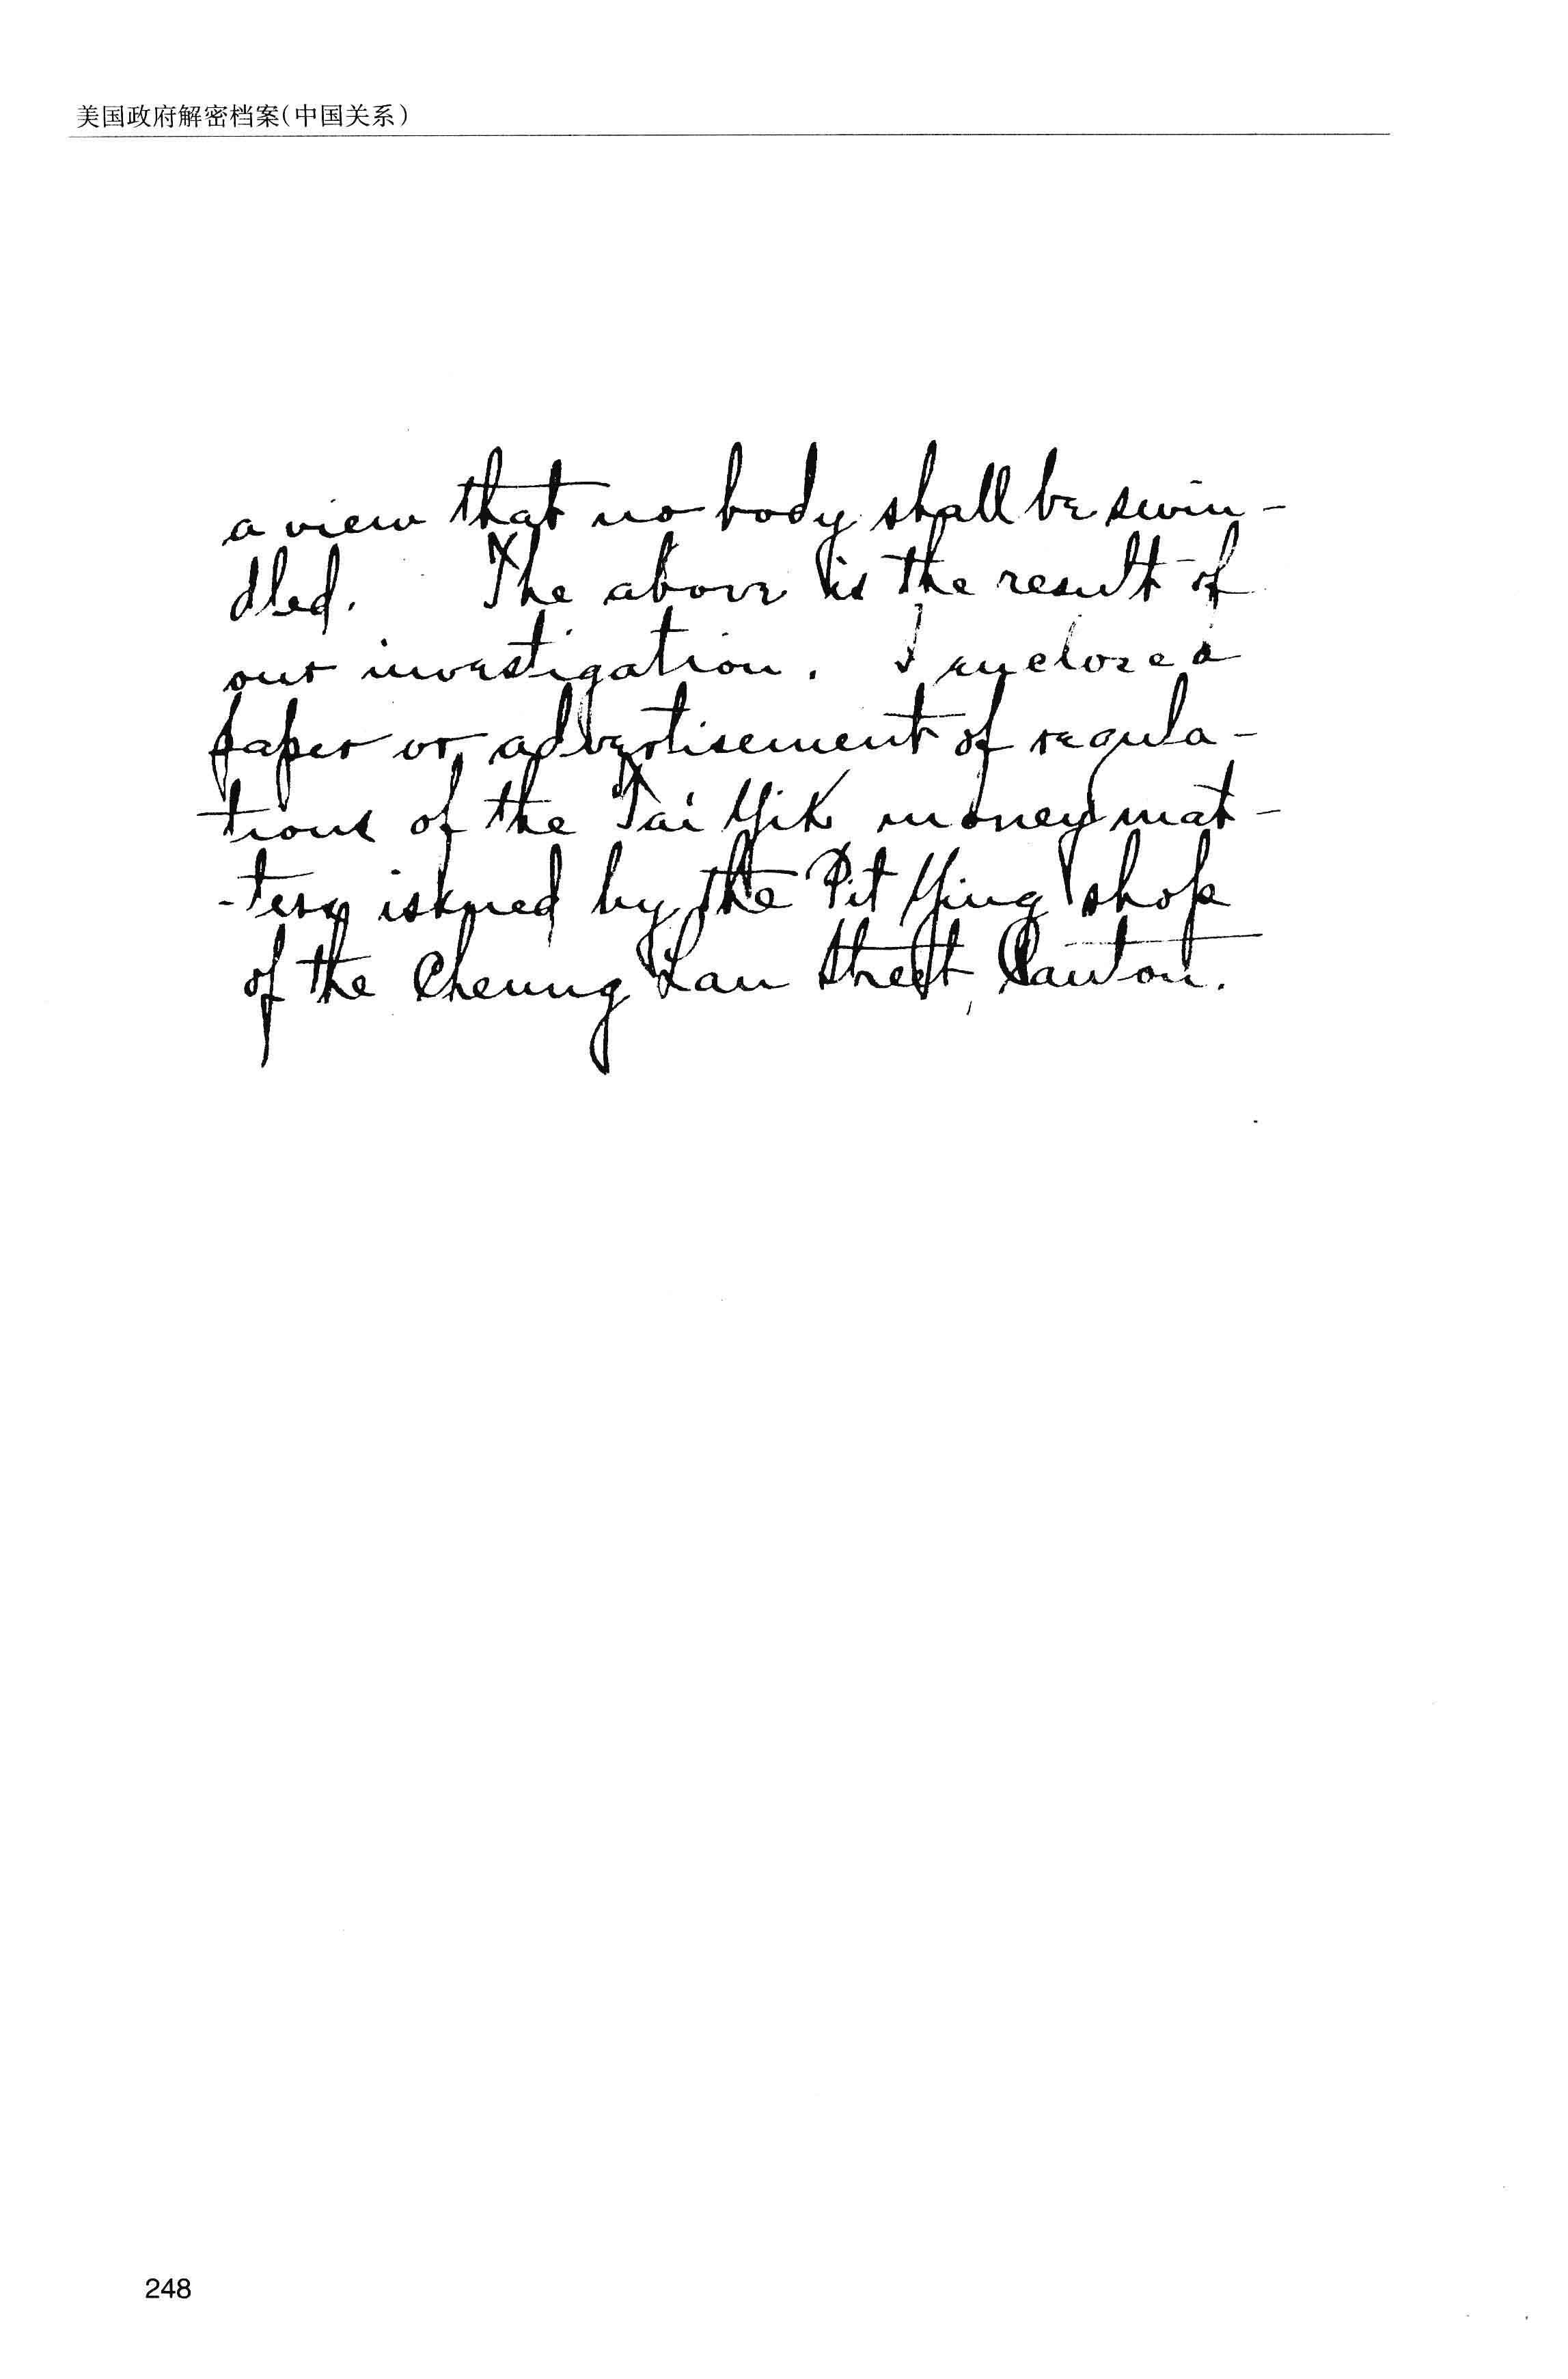 美国政府解密档案(中国关系)
a view that no body shall be swin-
dled. The above is the result of
our investigation. I enclose a
paper or advertisement of regula-
tions of the Tai Yik money mat-
-ters issued by the Pit Ying shop
of the Cheung Lan Street, Canton.
248